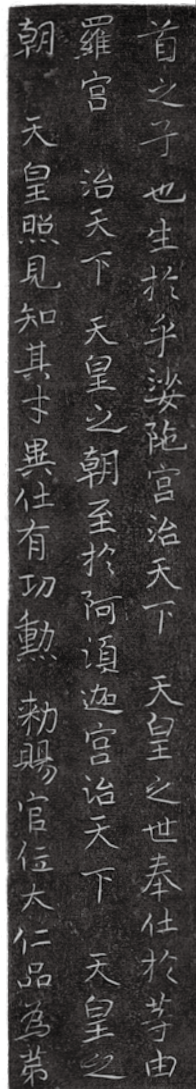 首之子也生於乎娑陁宮治天下　天皇之世奉仕於等由
羅宮　治天下　天皇之朝至於阿湏迦宮治天下　天皇之
朝　天皇照見知其才異仕有功勲　勅賜官位大仁品為第